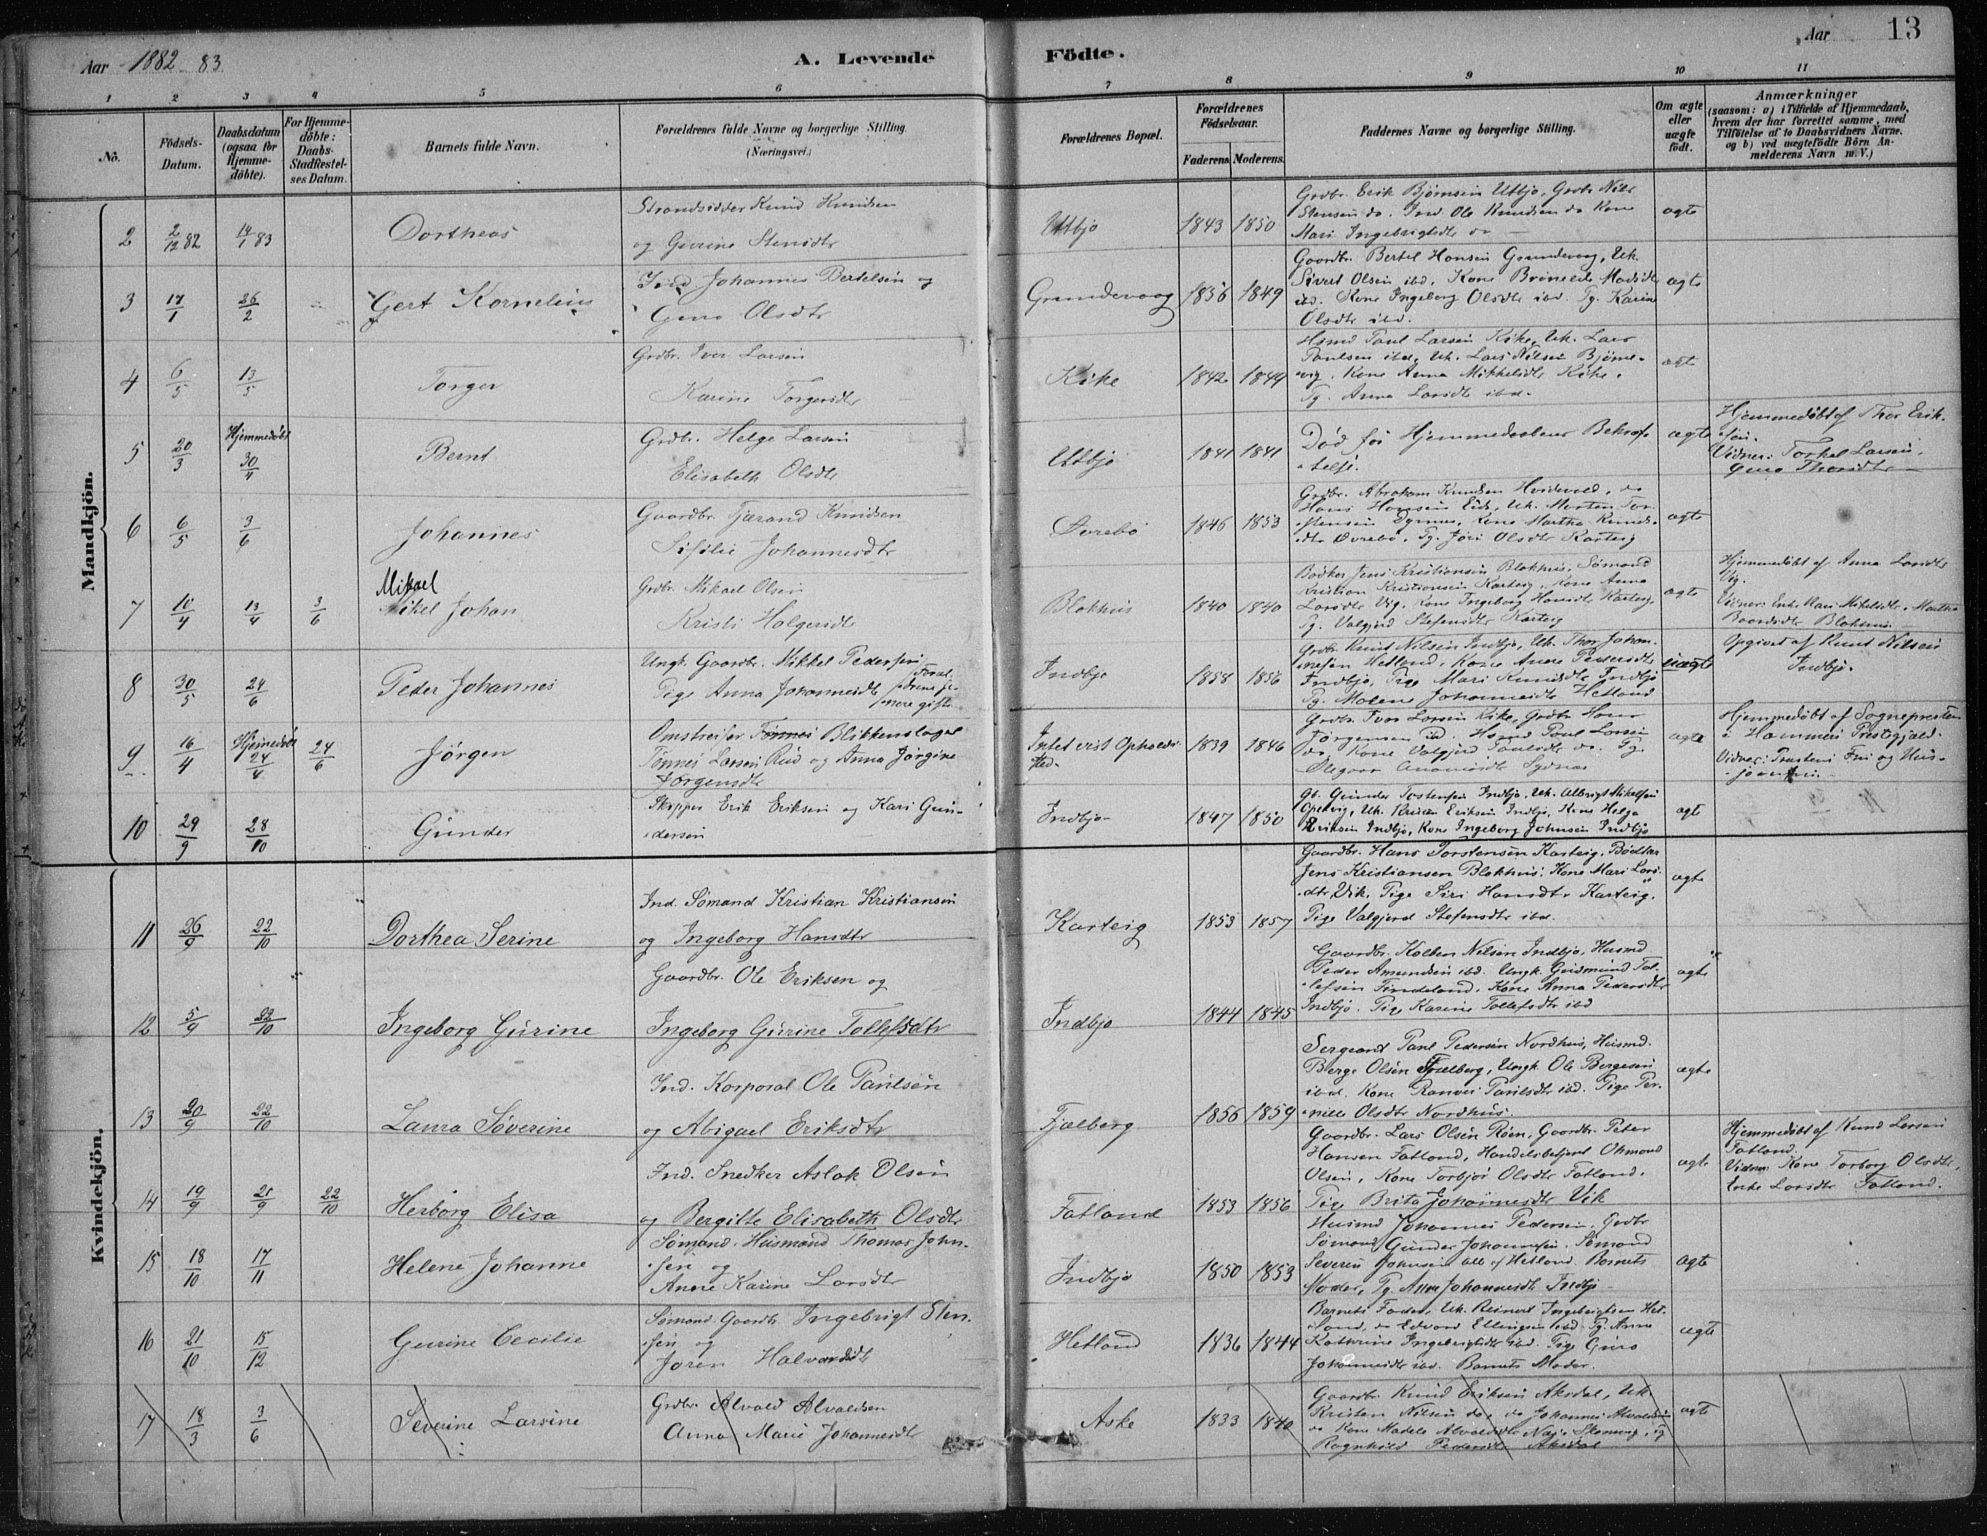 Aar 1882 83.
A. Levende Födte.
Aar 13
1 2 3 4 5 6 7 8 9 10 11
No.
Födsels-Datum.
Daabsdatum (ogsaa for Hjemme-döbte).
For Hjemme-döbte: Daabs-Stadfæstel-ses Datum.
Barnets fulde Navn.
Forældrenes fulde Navne og borgerlige Stilling.
(Næringsvei.)
Forældrenes Bopæl.
Forældrenes Födselsaar.
Faderens. Moderens.
Faddernes Navne og borgerlige Stilling.
Om ægte eller uægte födt.
Anmærkninger
(saasom: a) i Tilfælde af Hjemmedaab,
hvem der har forrettet samme, med
Tilföielse af to Daabsvidners Navne,
og b) ved uægtefödte Börn An-
melderens Navn m. V.)
Mandkjön.
2 2/12 82 14/1 83 Dortheas
Strandsidder Knud Knudsen
og Gurine Stensdtr
Utbjo 1843 1850
Grdbr. Erik Bjørnsen Utbjo, Grdbr Nils
Stensen do. Ind. Ole Knudsen do Kone
Mari Ingebrigtsdtr do
ægte
3 17/1 26/2 Gert Kornelius
Ind Johannes Bertelsen og
Guro Olsdtr
Grundevaag 1856 1849
Gaardbr. Bertel Hansen Grundevaag, Uk.
Sivert Olsen ibd. Kone Madsdtr
ibd. Kone Ingeborg Olsdtr ibd. Pg. Karen
Olsdtr ibd.
ægte
4 6/5 13/5 Torger
Grdbr. Iver Larsen
Karine Torgersdtr
Kike 1842 1844
Hsmd Paul Larsen Kike, Uk. Lars
Paulsen ibd, Uk. Lars Nilsen Bjørne-
vig. Kone Anna Mikkelsdtr Kike.
Pg. Anna Larsdtr ibd.
ægte
5 20/3 Hjemmedøbt 30/4 Bernt
Grdbr. Helge Larsen
Elisabeth Olsdtr
Utbjo 1841 1841
Død før Hjemmedaabens Bekræf-
telse.
ægte
Hjemmedøbt af Thor Erik-
sen.
Vidner: Torkel Larsen,
Guro Thorsdtr
6 6/5 3/6 Johannes
Gaardbr. Tjærand Knudsen
Sisilie Johannesdtr
Øvrebø 1846 1853
Grdbr. Abraham Knudsen Hvidevold, do
Hans Hansen Eide, Uk. Morten Tor-
stensen, Kone Martha Knuds-
dtr Øvrebø, Pg. Jøri Olsdtr Karteig
ægte
7 10/4 13/4 3/6 Mikael Johan
Grdbr. Mikael Olsen
Kristi Holgersdtr
Blokhus 1840 1840
Bødker Jens Kristiansen Blokhus, Sømand
Kristian Kristiansen Karteig, Kone Anna
Larsdtr Vig. Kone Ingeborg Hansdtr Karteig,
Pg. Valgjerd Stefensdtr Karteig
ægte
Hjemmedøbt af Anna Larsdtr
Vig.
Vidner: Enke Mikelsdtr, Martha
Baardsdtr Blokhus
8 30/5 24/6 Peder Johannes
Ungk. Gaardbr. Mikkel Pedersen
Pige Anna Johannesdtr
Indbjo 1858 1856
Grdbr Knud Nilsen Indbjo, Uk. Thor Johan-
nesen Hetland, Kone Anne Pedersdtr
Indbjo, Pige Mari Knudsdtr Indbjo
Pg. Malene Johannesdtr Hetland
uægte
Opgivet af Knud Nilsen
Indbjo.
9 16/4 Hjemmedøbt 24/4 24/6 Jörgen
Omstreifer Tønnes Blikkenslager
Tønnes Larsen Rud og Anna Jørgine
Jørgensdtr
Intet vist Opholds-
sted. 1839 1846
Grdbr. Iver Larsen Kike, Grdbr Hans
Jørgensen ibd. Hsmd Paul Larsen
do, Kone Valgjerd Paulsdtr do. Pg.
ægte
Hjemmedøbt af Sognepresten
i Hammers Prestegjeld.
Vidner:
10 29/9 28/10 Gunder
Skipper Erik Eriksen og Kari Gun-
dersen
Indbjo 1847 1850
Gb. Gunder Tostensen Indbjo, Uk. Albrigt Mikelsen
Opevig, Uk. Eriksen Indbjo, Kone Helga
Eriksen Indbjo, Kone Ingeborg Johnsen Indbjo
ægt
Kvindekjön.
11 26/9 22/10 Dorthea Serine
Ind. Sømand Kristian Kristiansen
og Ingeborg Hansdtr
Karteig 1853 1857
Gaardbr. Hans Torstensen Karteig, Bødker
Jens Kristiansen Blokhus, Kone Mari Lars-
dtr Vik, Pige Siri Hansdtr Karteig,
Pige Valgjerd Stefensdtr ibd.
ægte
12 5/9 22/10 Ingeborg Gurine
Gaardbr. Ole Eriksen og
Ingeborg Gurine Tollefsdtr
Indbjo 1844 1845
Gaardbr. Kolben Nilsen Indbjo, Husmd
Peder Amundsen ibd. Ungk. Gudmund Tol-
lefsen Tindeland. Kone Anna Pedersdtr
Indbjo. Pige Karine Tollefsdtr ibd
ægte
13 20/9 22/10 Laura Søverine
Ind. Korporal Ole Paulsen
og Abigael Eriksdtr
Fjælberg 1856 1859
Sergeant Paul Pedersen Nordhus, Husmd.
Berge Olsen Fjælberg, Ungk Ole Bergesen
ibd. Kone Ranvei Paulsdtr ibd. Pige Per-
nille Olsdtr Nordhus.
ægte
14 19/9 21/9 22/10 Herborg Elisa
Ind. Snedker Aslak Olsen
og Bergitte Elisabeth Olsdtr
Fatland 1853 1856
Gaardbr. Lars Olsen Røen, Gaardbr. Peter
Hansen Fatland, Handelsbetjent Osmond
Olsen, Kone Torbjør Olsdtr Fatland.
Pige Brita Johannesdtr Vik
ægte
Hjemmedøbt af Knud Larsen
Fatland.
Vidner: Kone Torborg Olsdtr,
Enke Larsdtr Fatland.
15 18/10 17/11 Helene Johanne
Sømand. Husmand Thomas John-
sen og
Anne Karine Larsdtr
Indbjo 1850 1853
Husmd Johannes Pedersen, Grdbr
Sømand Gunder Johannesen. Sømand
Severin Johnsen alle af Hetland. Barnets
Moder, Pg. Anna Johannesdtr Indbjo
ægte
16 21/10 15/12 Gurine Cecilie
Sømand Gaardbr. Ingebrigt Sten-
sen og
Joren Halvorsdtr
Hetland 1836 1844
Barnets Fader, Uk. Reinert Ingebrigtsen Het-
land, do Edvard Ellingsen ibd. Pg. Anna
Kathrine Ingebrigtsdtr ibd. Pige Guro
Johannesdtr ibd. Barnets Moder.
ægte
17 18/3 3/6 Severine Larsine
Grdbr. Alvald Alvaldsen
Anna Marie Johannesdtr
Aske 1833 1840
Gaardbr. Knud Eriksen Aksdal, Uk.
Kristen Nilsen do, do Johannes Alvaldsen
do Kone Madele Alvaldsdtr
Ragnhild Pedersdtr Aksdal
ægte